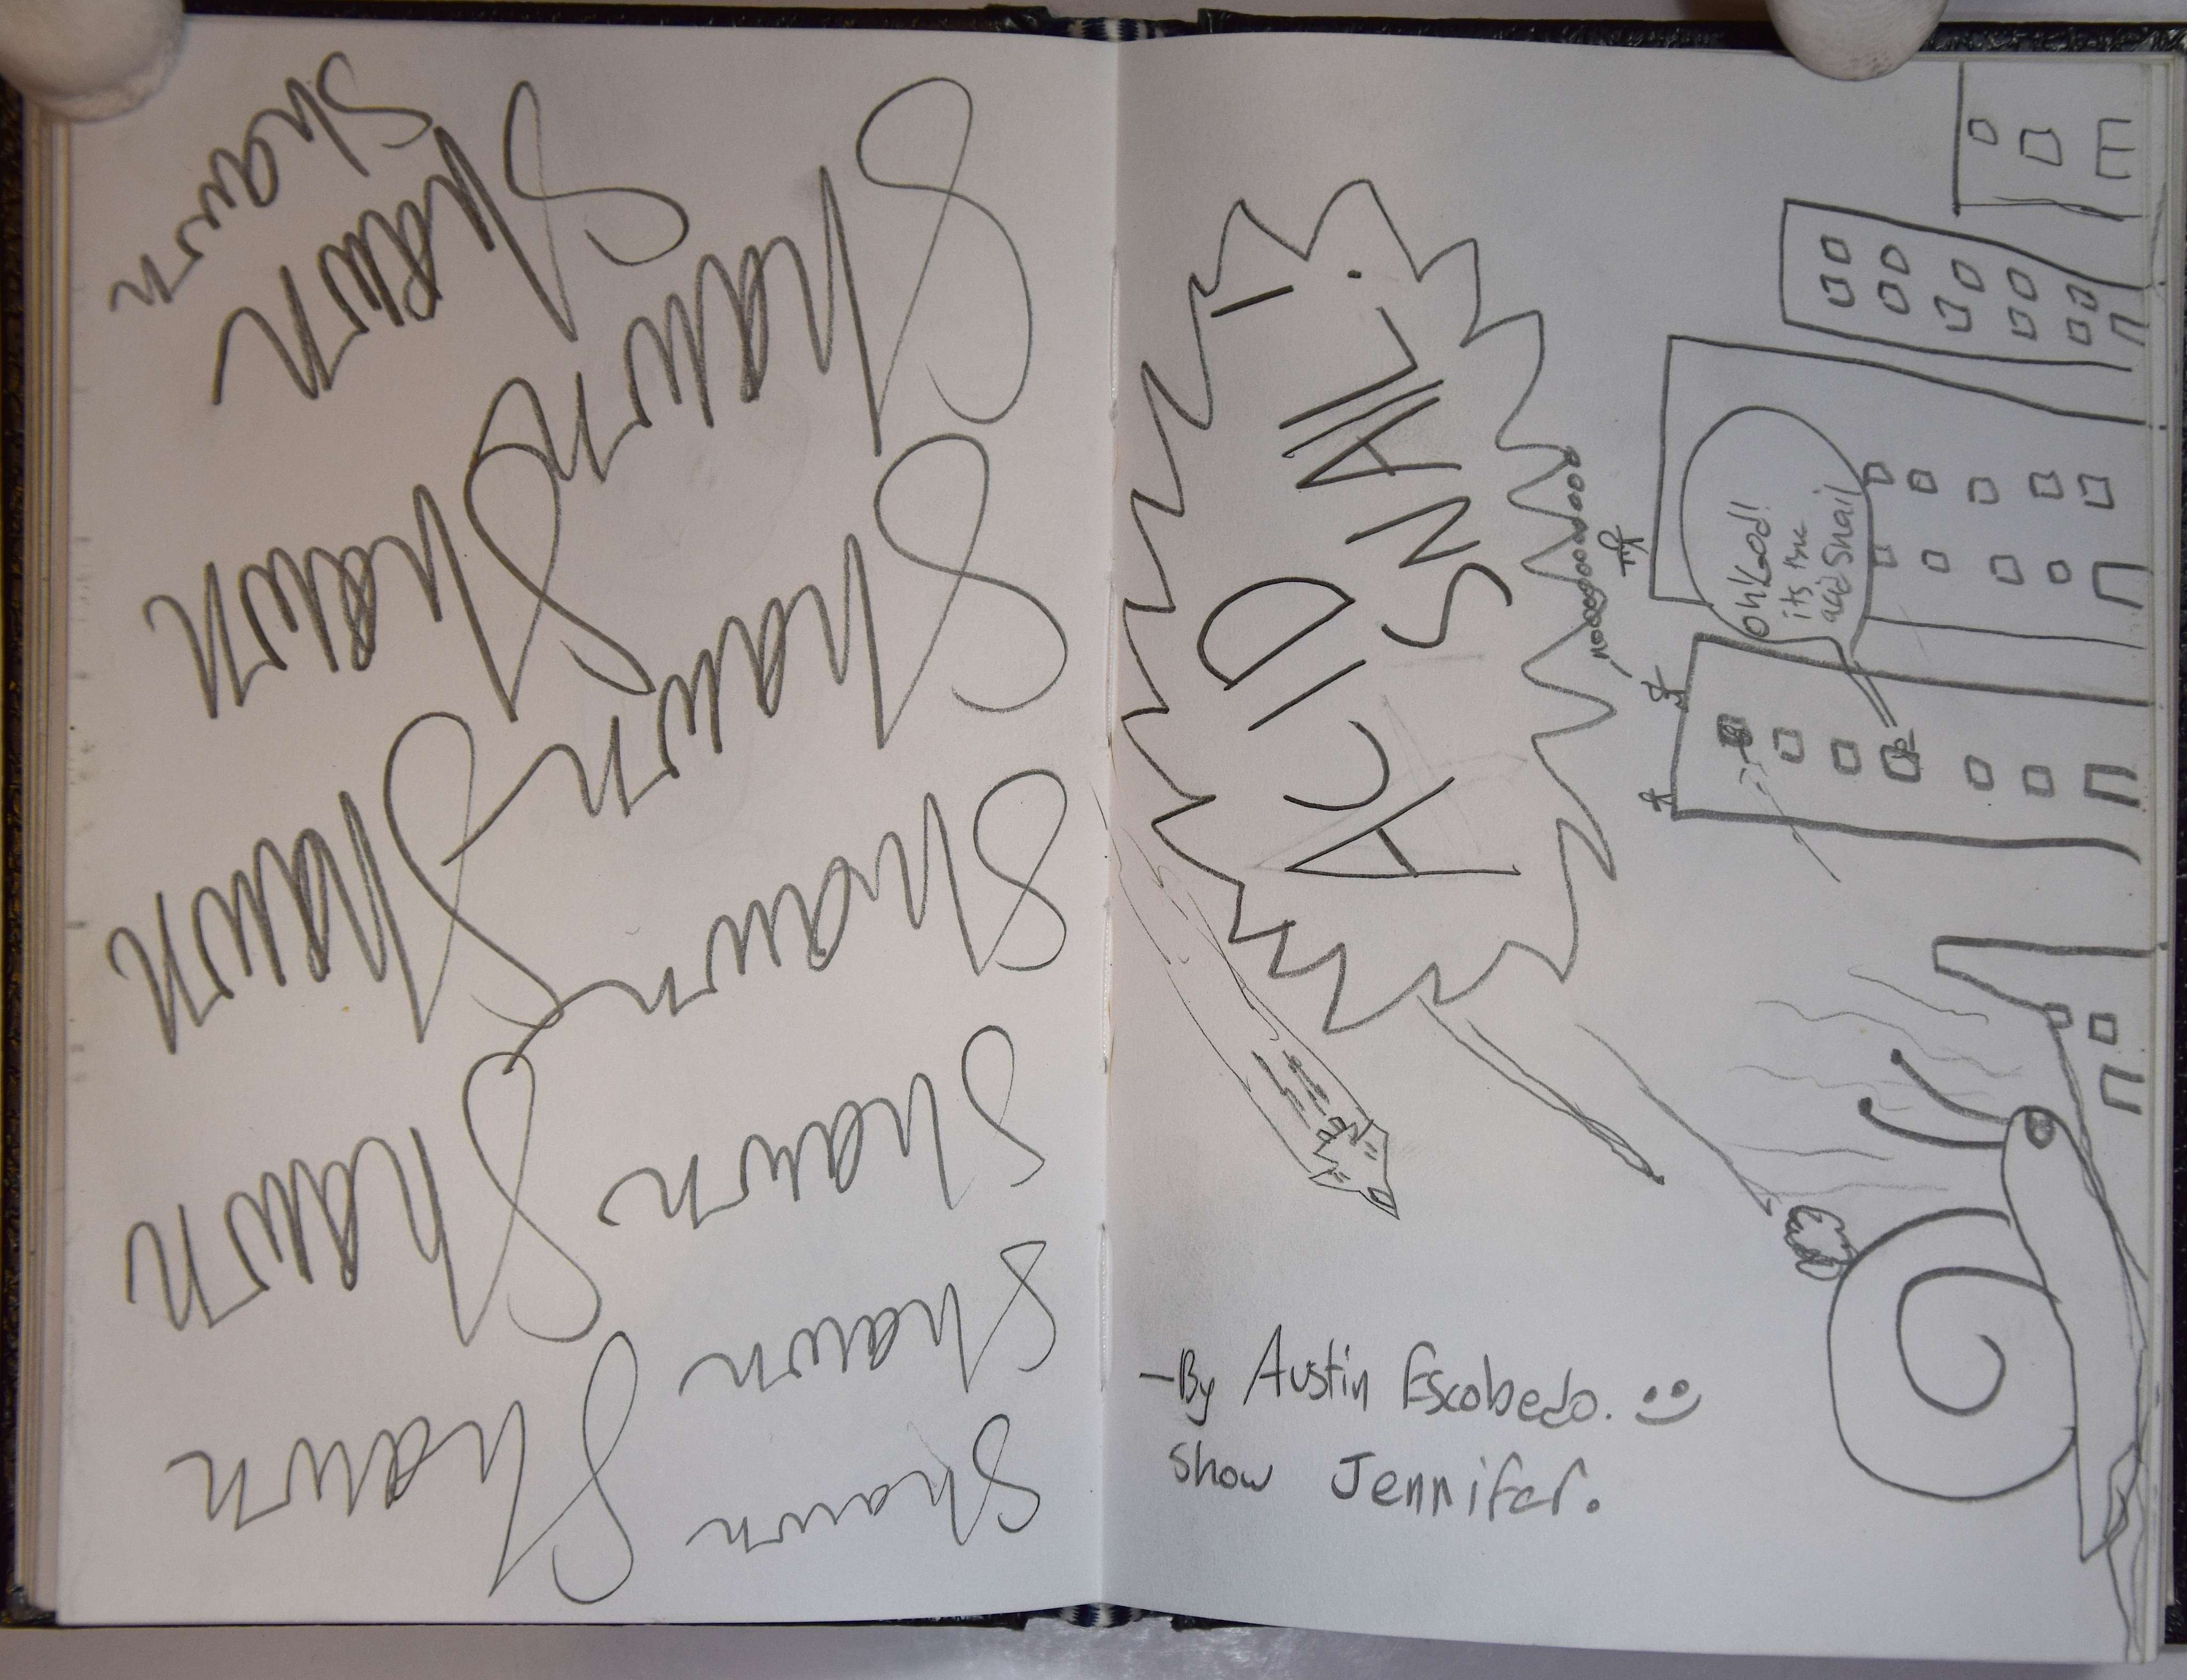 Shawn
Shawn
Shawn
Shawn
Shawn
Shawn
Shawn
Shawn
Shawn
Shawn
Shawn
Shawn
ACID
SNAIL!
oh! God!
its the
acid Snail
-By Austin Escobedo. :)
Show Jennifer.